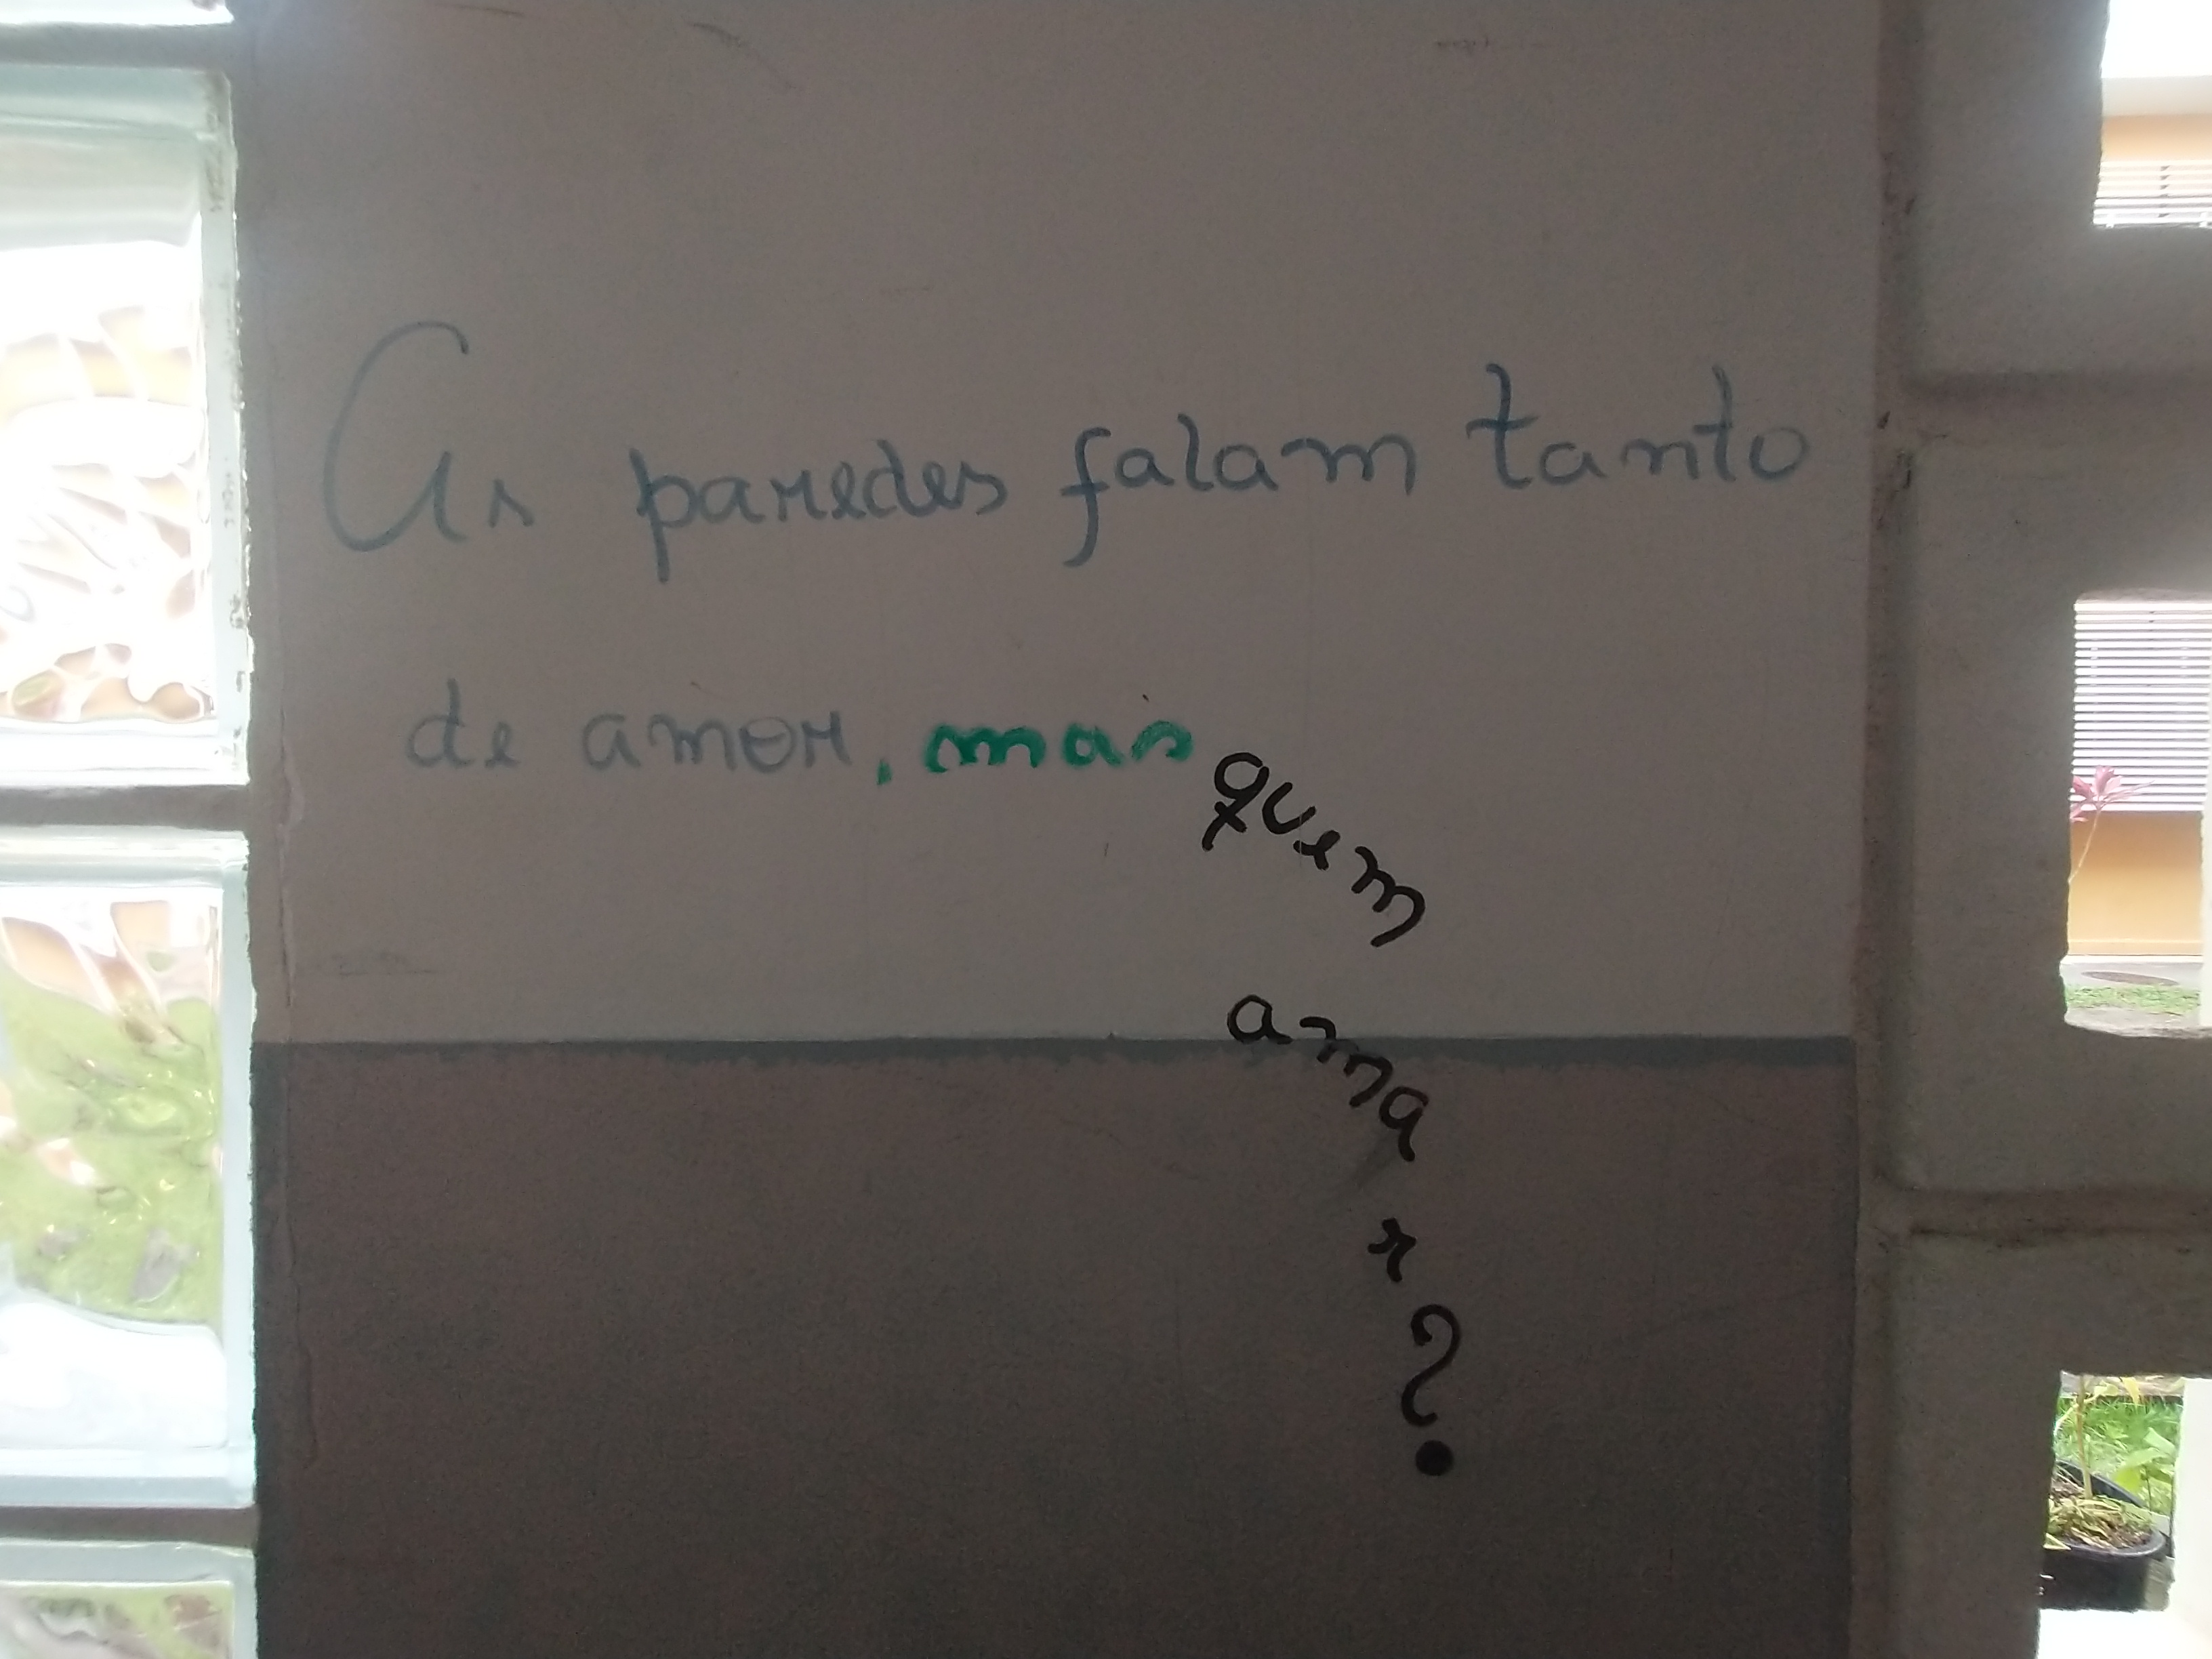 As paredes falam tanto
de amor, mas quem
amar?